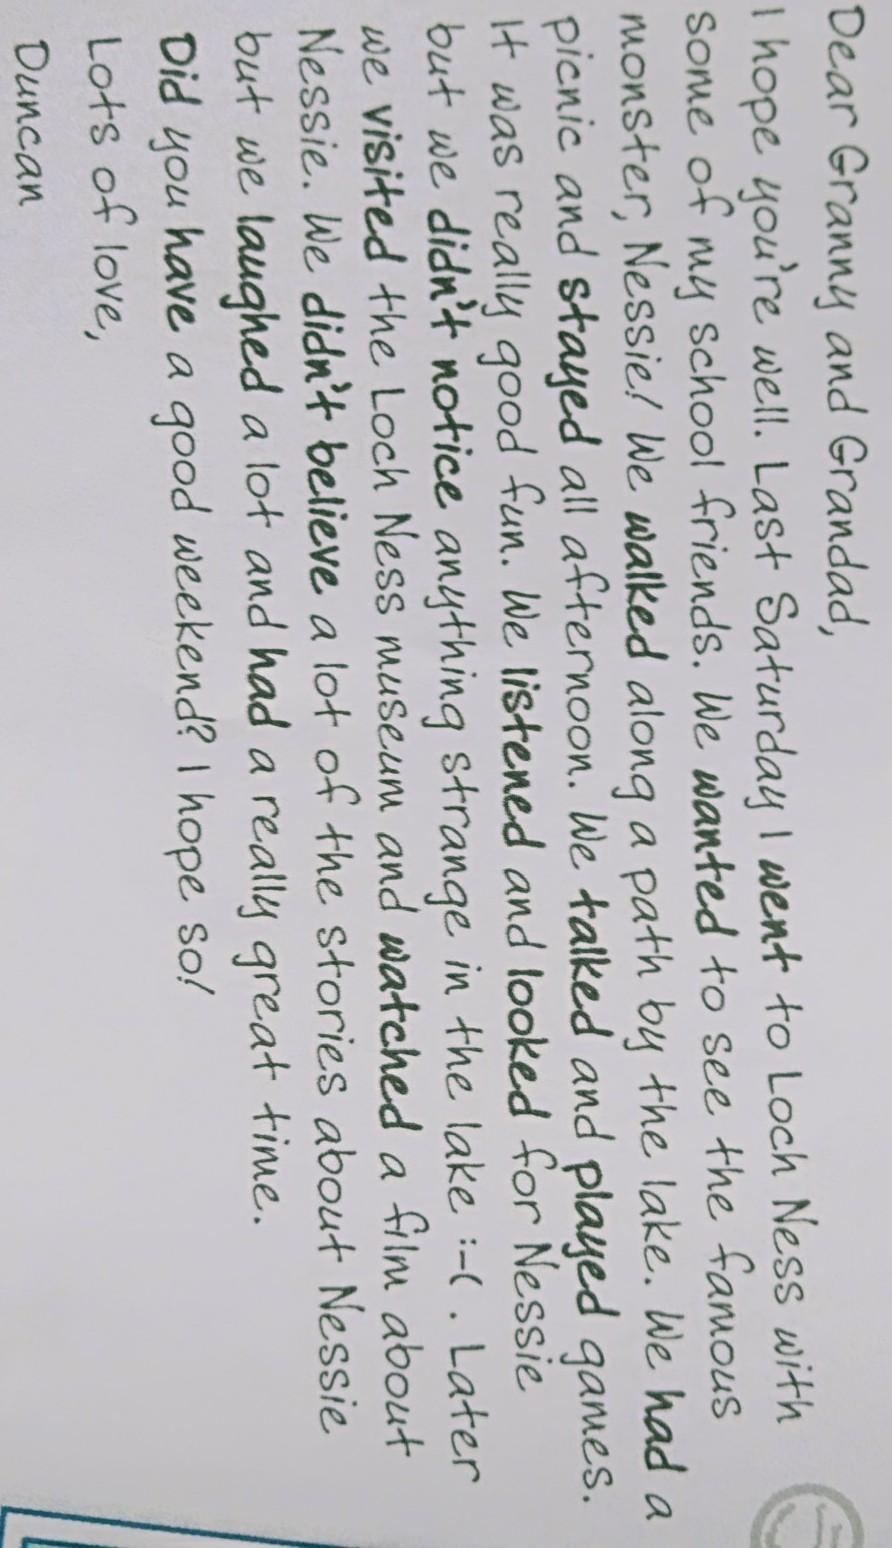 Dear Granny and Grandad,
I hope you're well. Last Saturday I went to Loch Ness with
some of my school friends. We wanted to see the famous
monster, Nessie! We walked along a path by the lake. We had a
picnic and stayed all afternoon. We talked and played games.
It was really good fun. We listened and looked for Nessie
but we didn't notice anything strange in the lake :-( . Later
we visited the Loch Ness museum and watched a film about
Nessie. We didn't believe a lot of the stories about Nessie
but we laughed a lot and had a really great time.
Did you have a good weekend? I hope so!
Lots of love,
Duncan